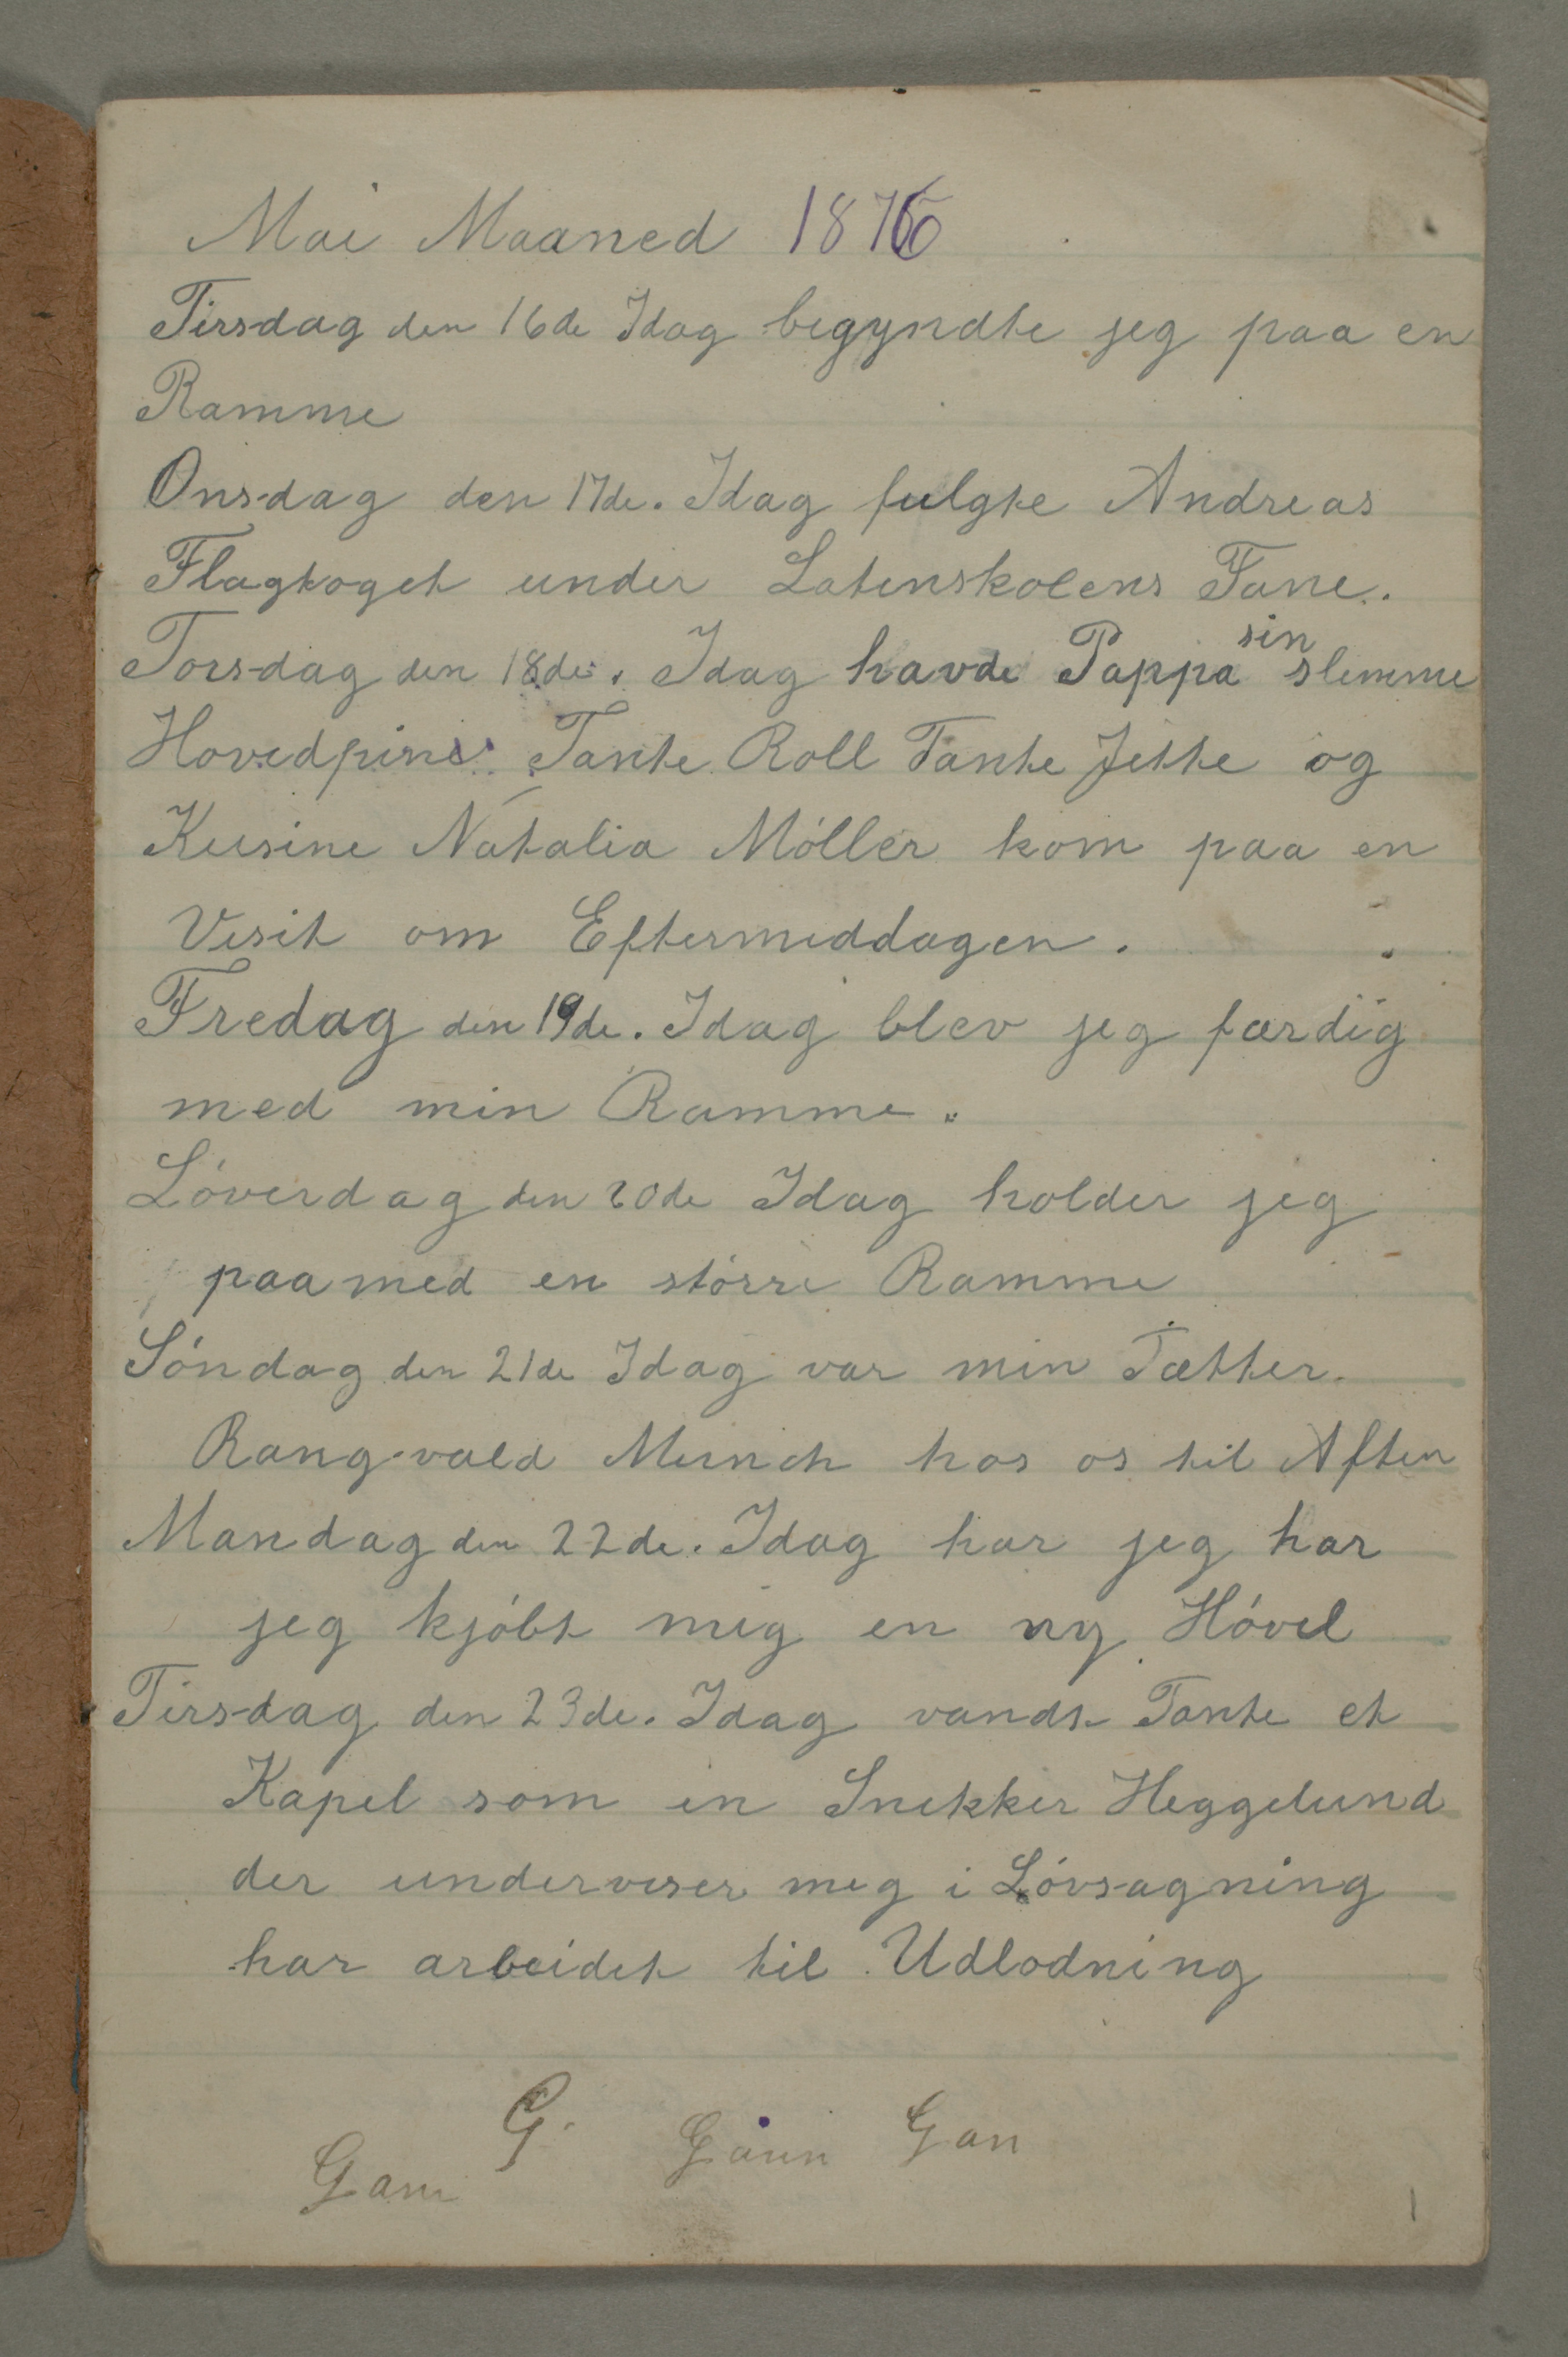 Mai Maaned 1876
Tirsdag den 16de Idag begyndte jeg paa en
Ramme
Onsdag den 17de. Idag fulgte Andreas
Flagtoget under Latinskolens Fane.
Torsdag den 18de. Idag havde Pappa sin slemme
Hovedpine. Tante Roll Tante Jette og
Kusine Natalia Móller kom paa en
Visit om Eftermiddagen.
Fredag den 19de. Idag blev jeg færdig
med min Ramme.
Lóverdag den 20de Idag holder jeg
paa med en stórre Ramme
Sóndag den 21de Idag var min Fætter.
Rangvald Munch hos os til Aften
Mandag den 22de. Idag har jeg har
jeg kjóbt mig en ny Hóvel
Tirsdag den 23de. Idag vandt Tante et
Kapel som en Snekker Heggelund
der underviser mig i Lóvsagning
har arbeidet til Udlodning
G.
Gam Gaun Gan
1